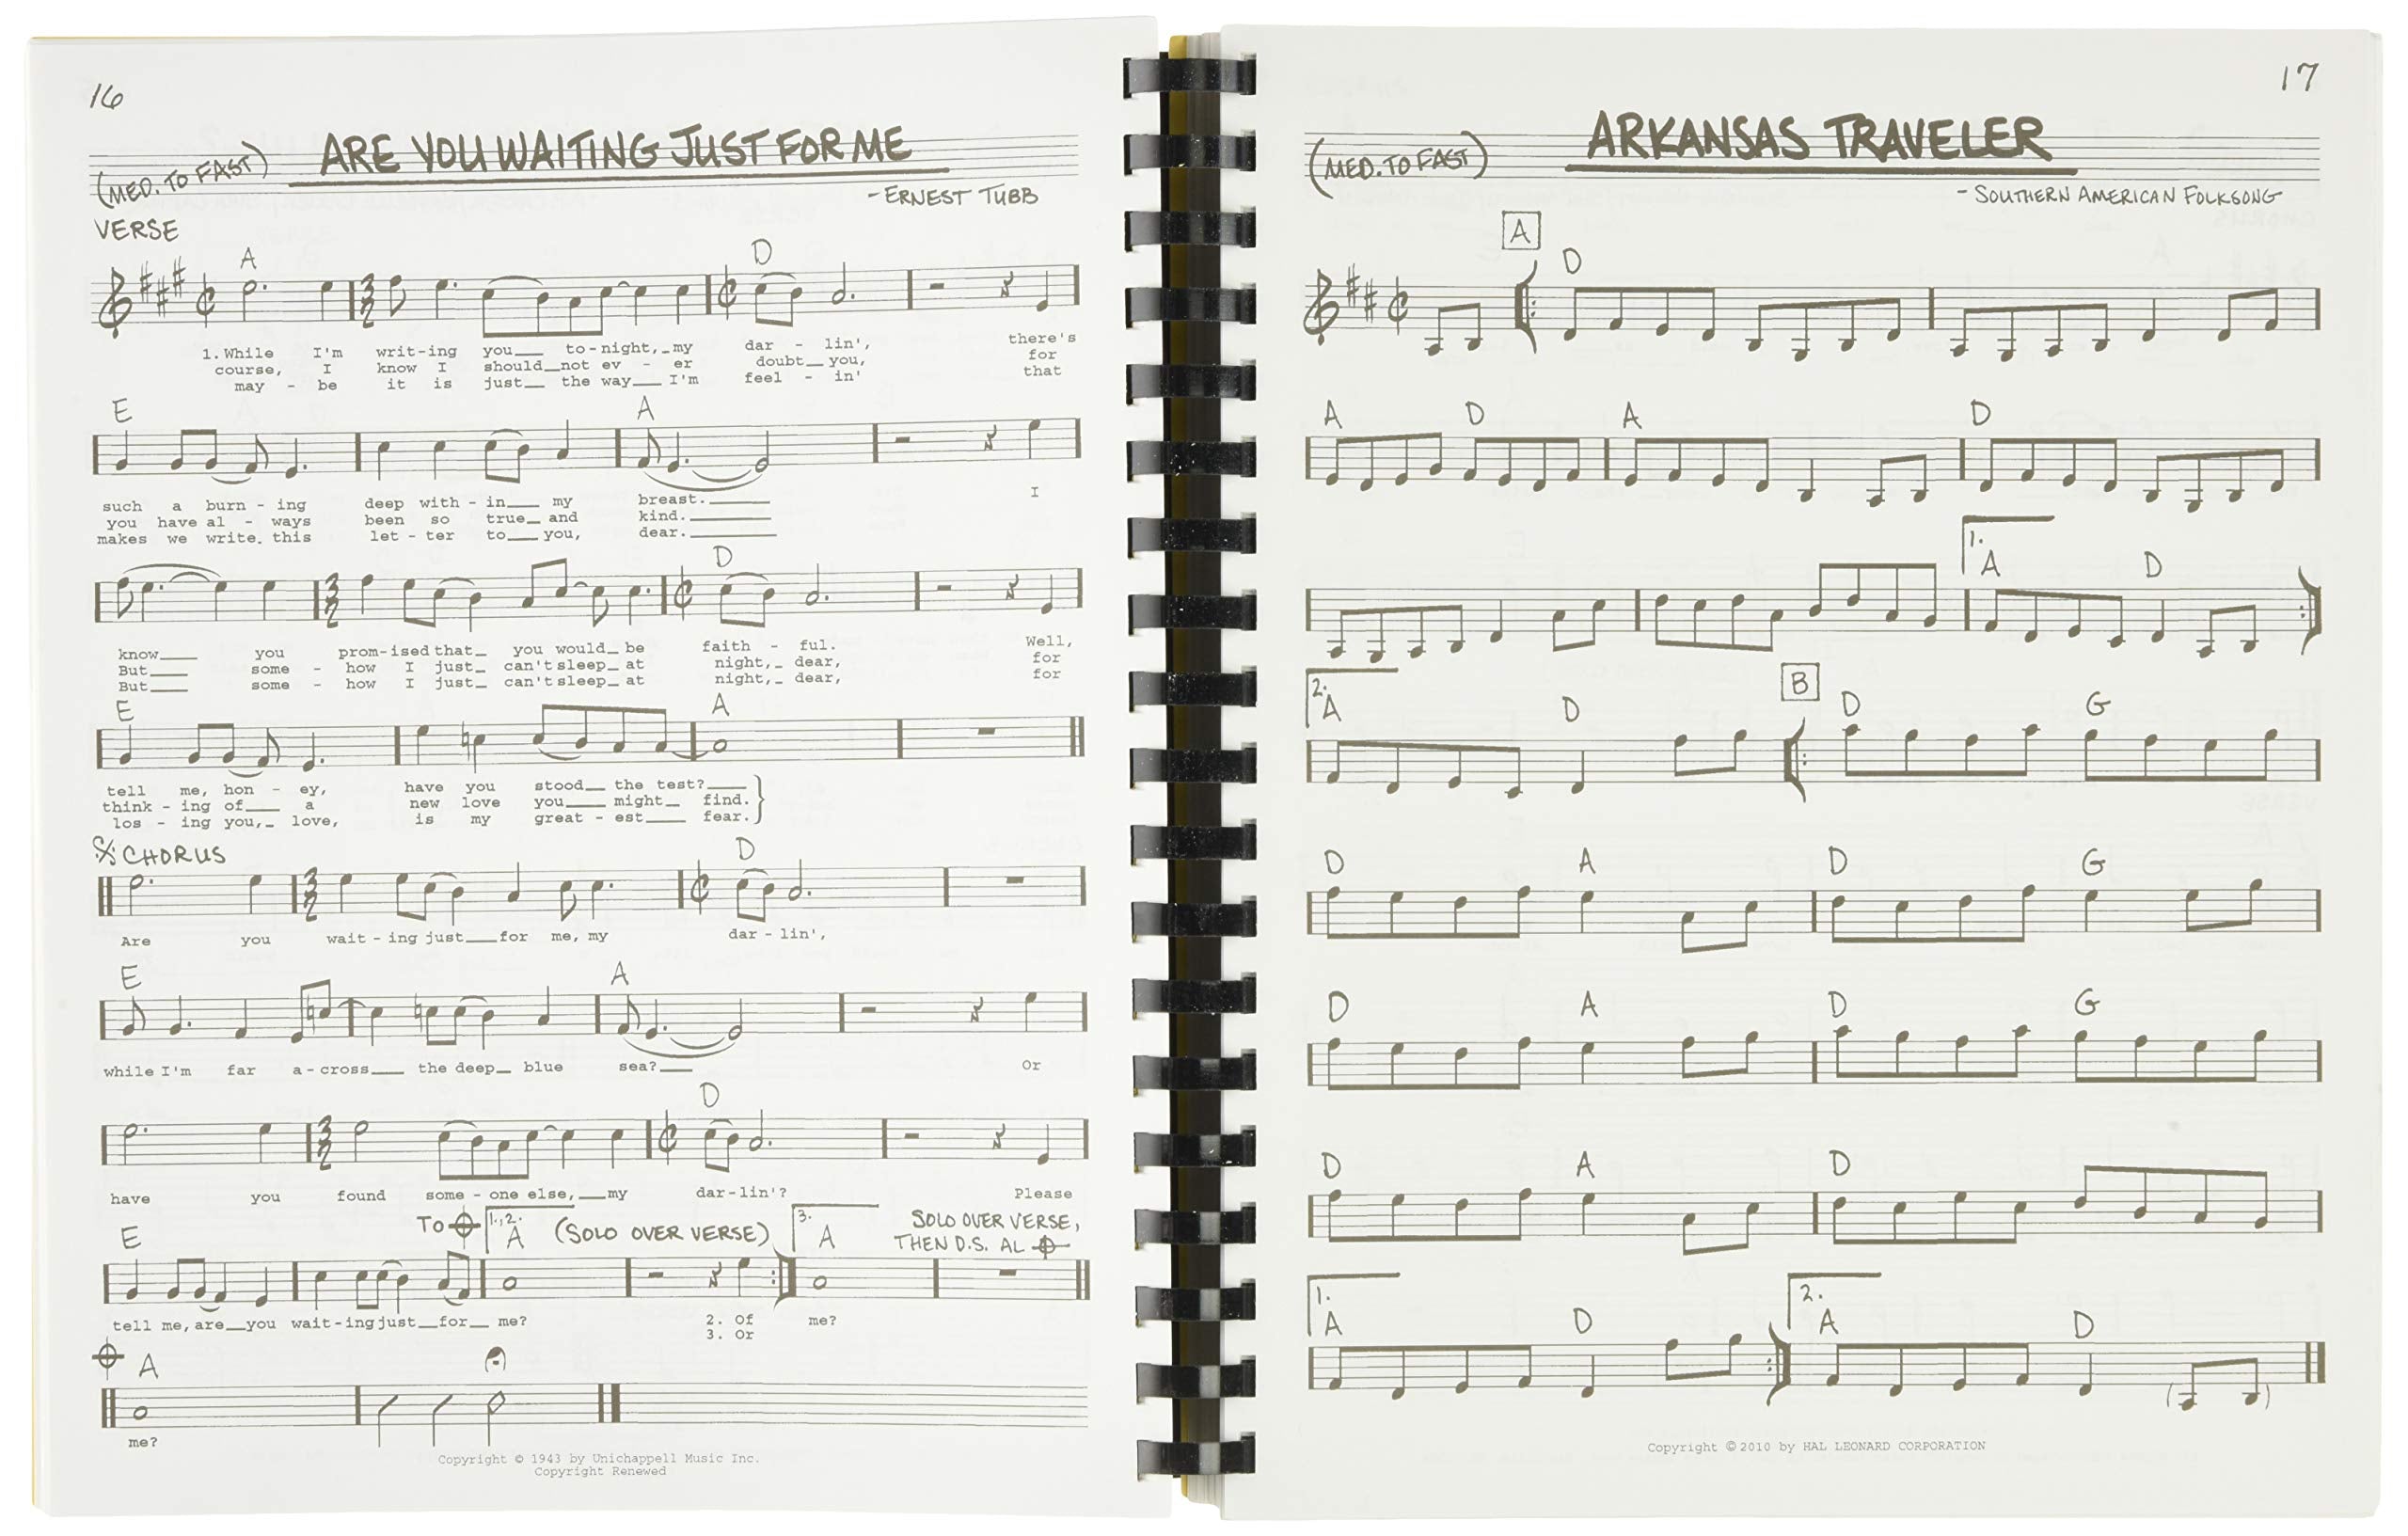 16
ARE YOU WAITING JUST FOR ME
(MED. TO FAST)
- ERNEST TUBB
VERSE
A D
1. While I'm writ-ing you__ to-night,_my dar - lin', there's
course, I know I should__not ev - er doubt__you, for
may - be it is just__ the way__ I'm feel - in' that
E A
such a burn - ing deep with - in__ my breast.____ I
you have al - ways been so true__ and kind.____
makes we write. this let - ter to__ you, dear.____
D
know__ you prom-ised that_ you would_ be faith - ful. Well,
But__ some - how I just_ can't sleep_ at night,_ dear, for
But__ some - how I just_ can't sleep_ at night,_ dear, for
E A
tell me, hon - ey, have you stood__ the test?__
think - ing of__ a new love you__ might_ find.
los - ing you,_ love, is my great - est__ fear.
CHORUS
D
Are you wait - ing just__for me, my dar - lin',
E A
while I'm far a-cross__ the deep_ blue sea?__ Or
D
have you found some - one else,__my dar-lin'? Please
E TO 1.,2. A (SOLO OVER VERSE) 3. A SOLO OVER VERSE,
THEN D.S. AL
tell me, are__you wait-ing just__for__ me? 2. Of me?
3. Or
A
me?
Copyright © 1943 by Unichappell Music Inc.
Copyright Renewed
17
ARKANSAS TRAVELER
(MED. TO FAST)
- SOUTHERN AMERICAN FOLKSONG
A
D
A D A D
1.
A D
2. B
A D D G
D A D G
D A D G
D A D
1. 2.
A D A D
Copyright © 2010 by HAL LEONARD CORPORATION